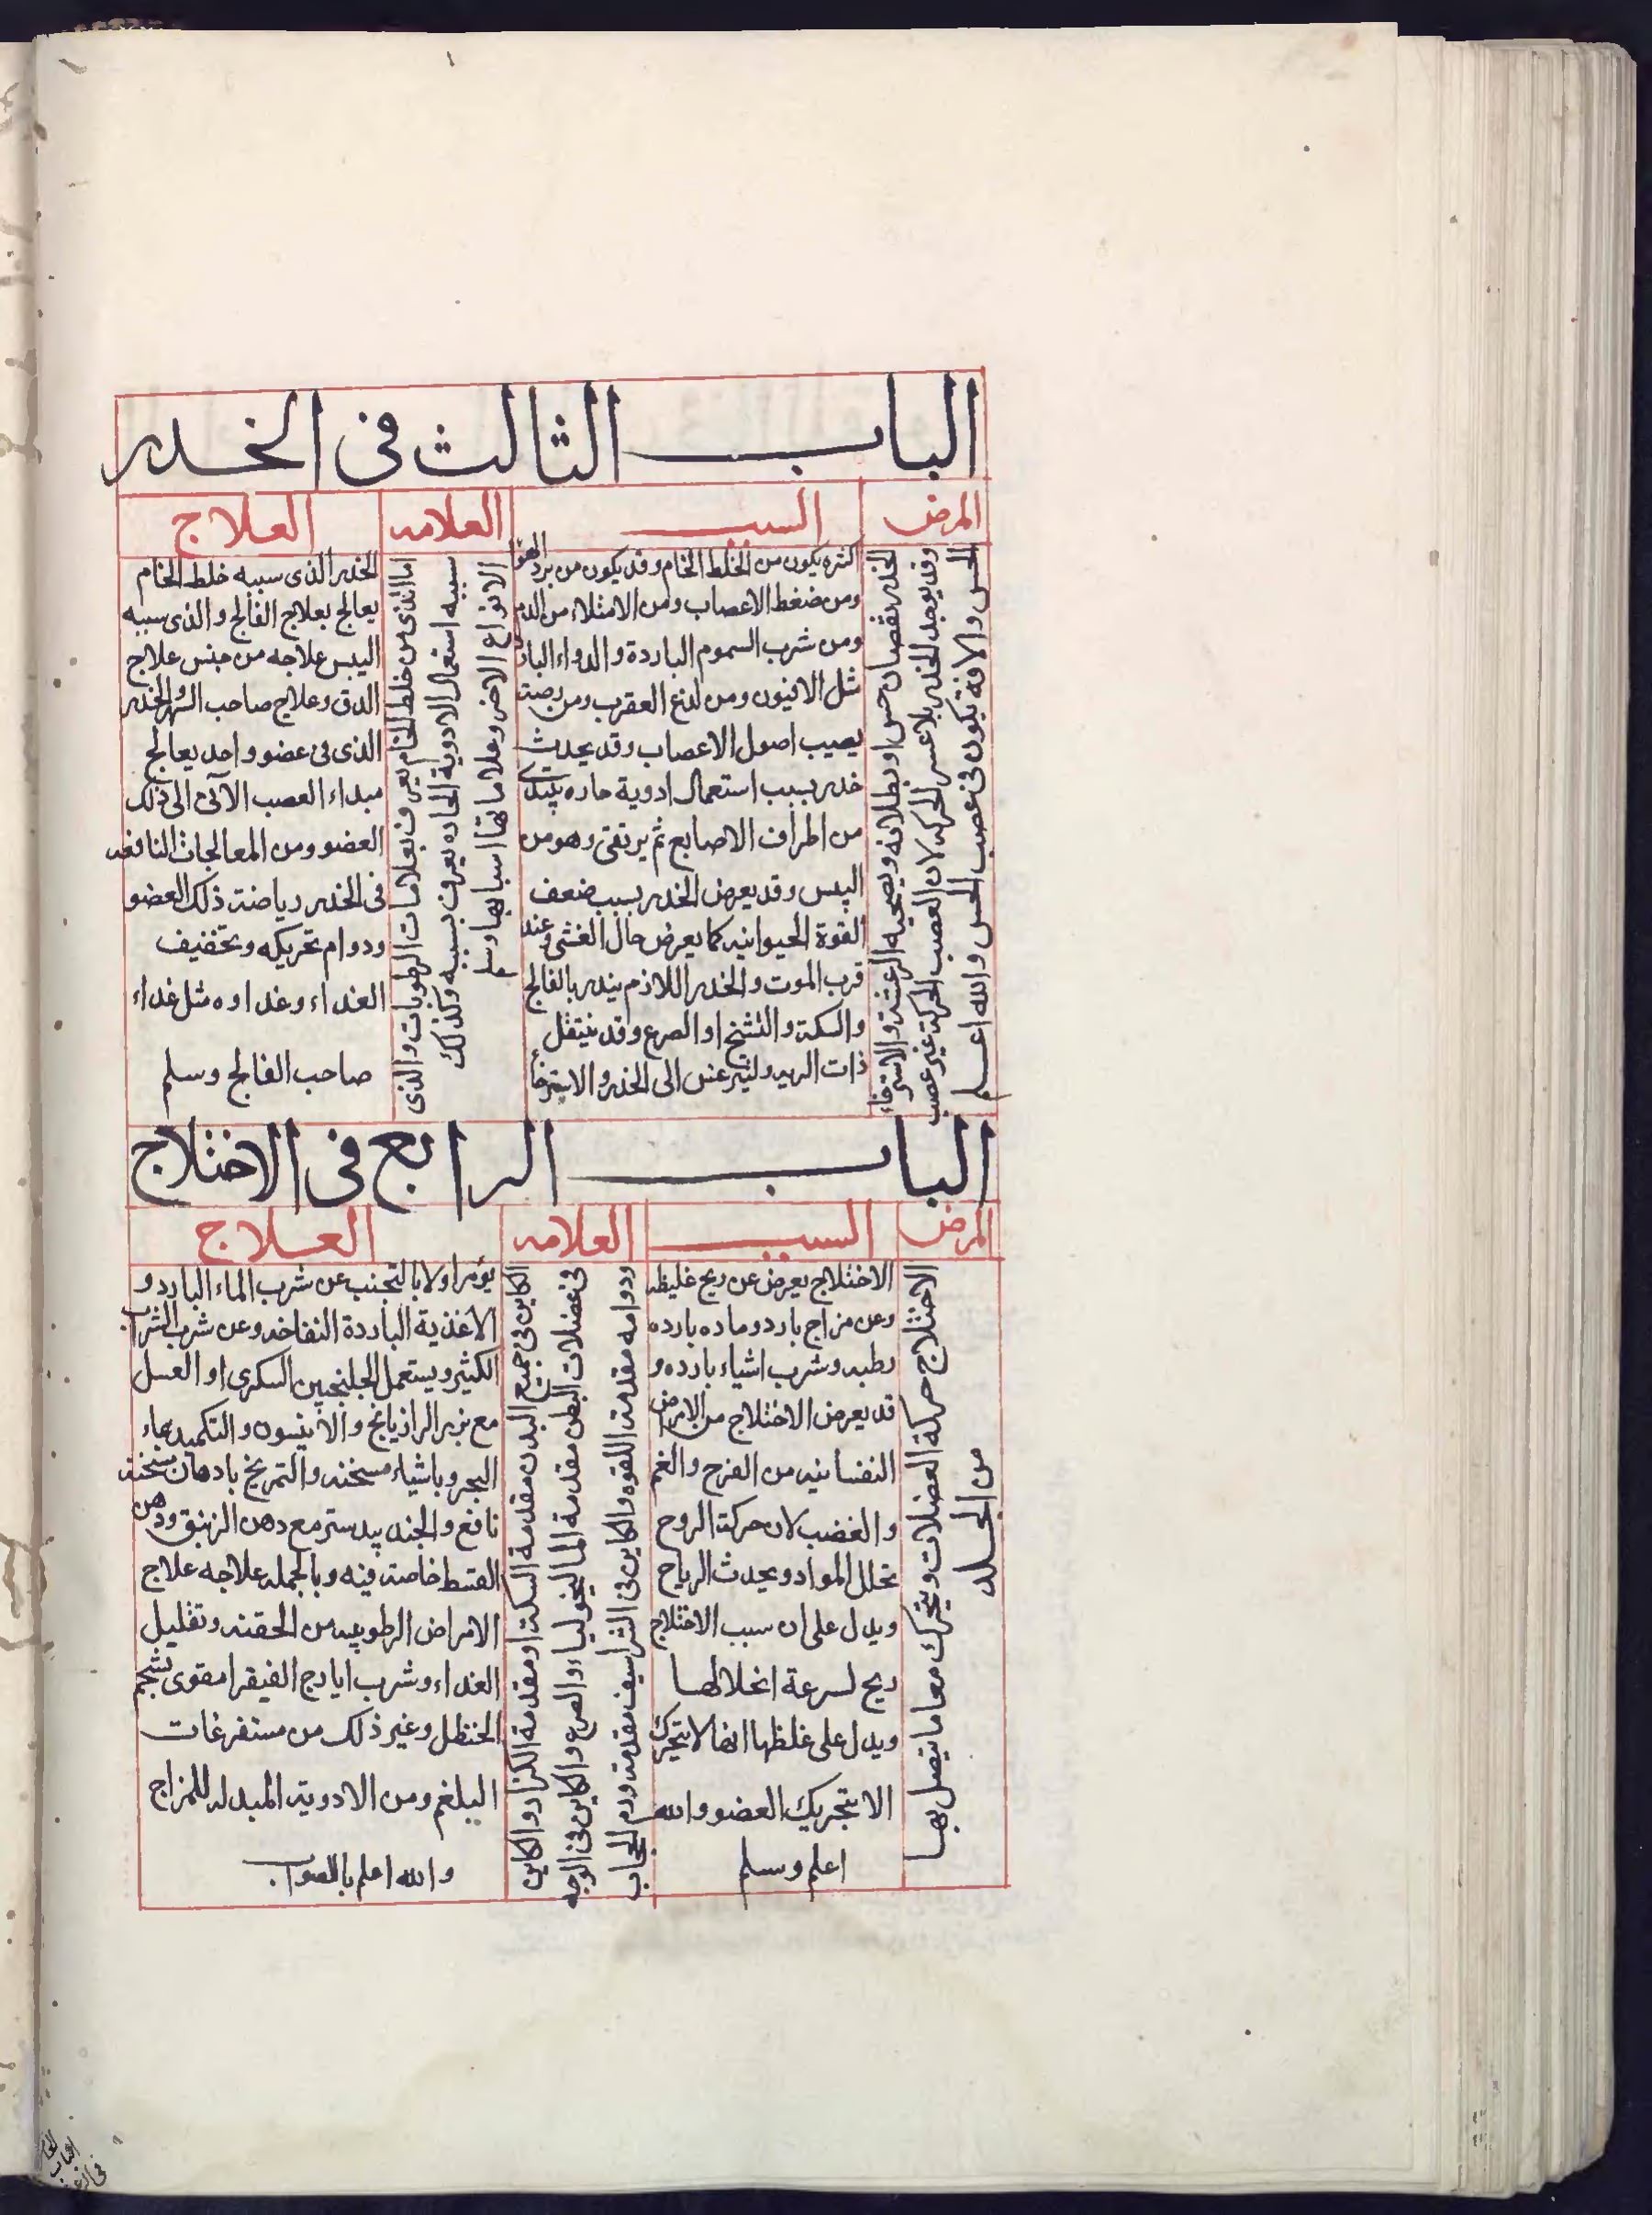 الباب الثالث فى الخدر
المرض
السبب
العلامه
العلاج
الخدر نقصان حس او بطلانه ويصحبه الرعشة والاسترخاء
وقد يوجد الخدر بلا عسر الحركه لان العصب الحركة غير عصب
الحس والافة يكون فى عصب الحس والله اعلم
اكثره يكون من الخلط الخام وقد يكون من برد الهوا
ومن ضغط الاعصاب ومن الامتلاء من الدم
ومن شرب السموم الباردة والدواء البارد
مثل الافيون ومن لدغ العقرب ومن
يصيب اصول الاعصاب وقد يحدث
خدر بسبب استعمال ادوية حاره
من اطراف الاصابع ثم يرتقى وهو من
اليبس وقد يعرض الخدر بسبب ضعف
القوة الحيوانيه كما يعرض حال الغشى وعند
قرب الموت والخدر اللازم ينذر بالفالج
والسكته والتشنج او الصرع وقد ينتقل
ذات الريه وليثرغس الى الخدر والاسترخا
اما الذى من خلط الخام يعرف بعلامات الرطوبات والذى
سببه استعمال الادوية الحاده يعرف بسببه وكذلك
الانواع الاخر وعلاماتها اسبابها وسلم
الخدر الذى سببه خلط الخام
يعالج بعلاج الفالج والذى سببه
اليبس علاجه من جنس علاج
الدق وعلاج صاحب السهر والخدر
الذى فى عضو واحد يعالج
مبداء العصب الآتى الى ذلك
العضو ومن المعالجات النافعه
فى الخدر رياضة ذلك العضو
ودوام تحريكه وتخفيف
الغداء وغداوه مثل غداء
صاحب الفالج وسلم
الباب الرابع فى الاختلاج
المرض
السبب
العلامه
العلاج
الاختلاج حركة العضلات ويتحرك معها ما يتصل بها
من الجلد
الاختلاج يعرض عن ريح غليظه
وعن مزاج بارد وماده بارده
رطبه وشرب اشياء بارده و
قد يعرض الاختلاج من الامراض
النفسانيه من الفرح والغم
والغضب لان حركة الروح
تحلل المواد ويحدث الرياح
ويدل على ان سبب الاختلاج
ريح لسرعة انحلالها
ويدل على غلظها انها لا تتحرك
الا بتحريك العضو والله
اعلم وسلم
الكاين فى جميع البدن مقدمة السكته او مقدمة الكزاز والكاين
فى عضلات البطن مقدمة الماليخوليا والصرع والكاين فى الوجه
ودوامه مقدمة اللقوه والكاين فى الشراسيف مقدمة ورم الحجاب
يؤمر اولا بالتجنب عن شرب الماء البارد و
الاغذية الباردة النفاخه وعن شرب الشراب
الكثير ويستعمل الجلنجبين السكرى او العسل
مع بزر الرازيانج والانيسون والتكميد بماء
البحر وباشياء مسخنه والتمريخ بادهان مسخنه
نافع والجندبيدستر مع دهن الزنبق ودهن
القسط خاصة فيه وبالجمله علاجه علاج
الامراض الرطوبيه من الحقنه وتقليل
الغداء وشرب ايارج الفيقرا مقوى بشحم
الحنظل وغير ذلك من مستفرغات
البلغم ومن الادويه المبدله للمزاج
والله اعلم بالصواب